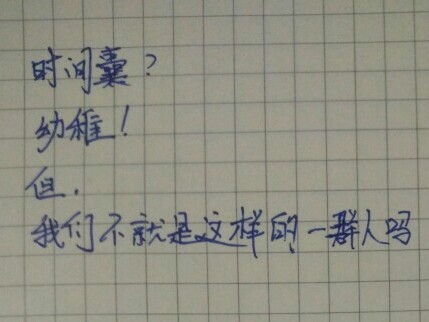 时间囊?
幼稚!
但.
我们不就是这样的一群人吗